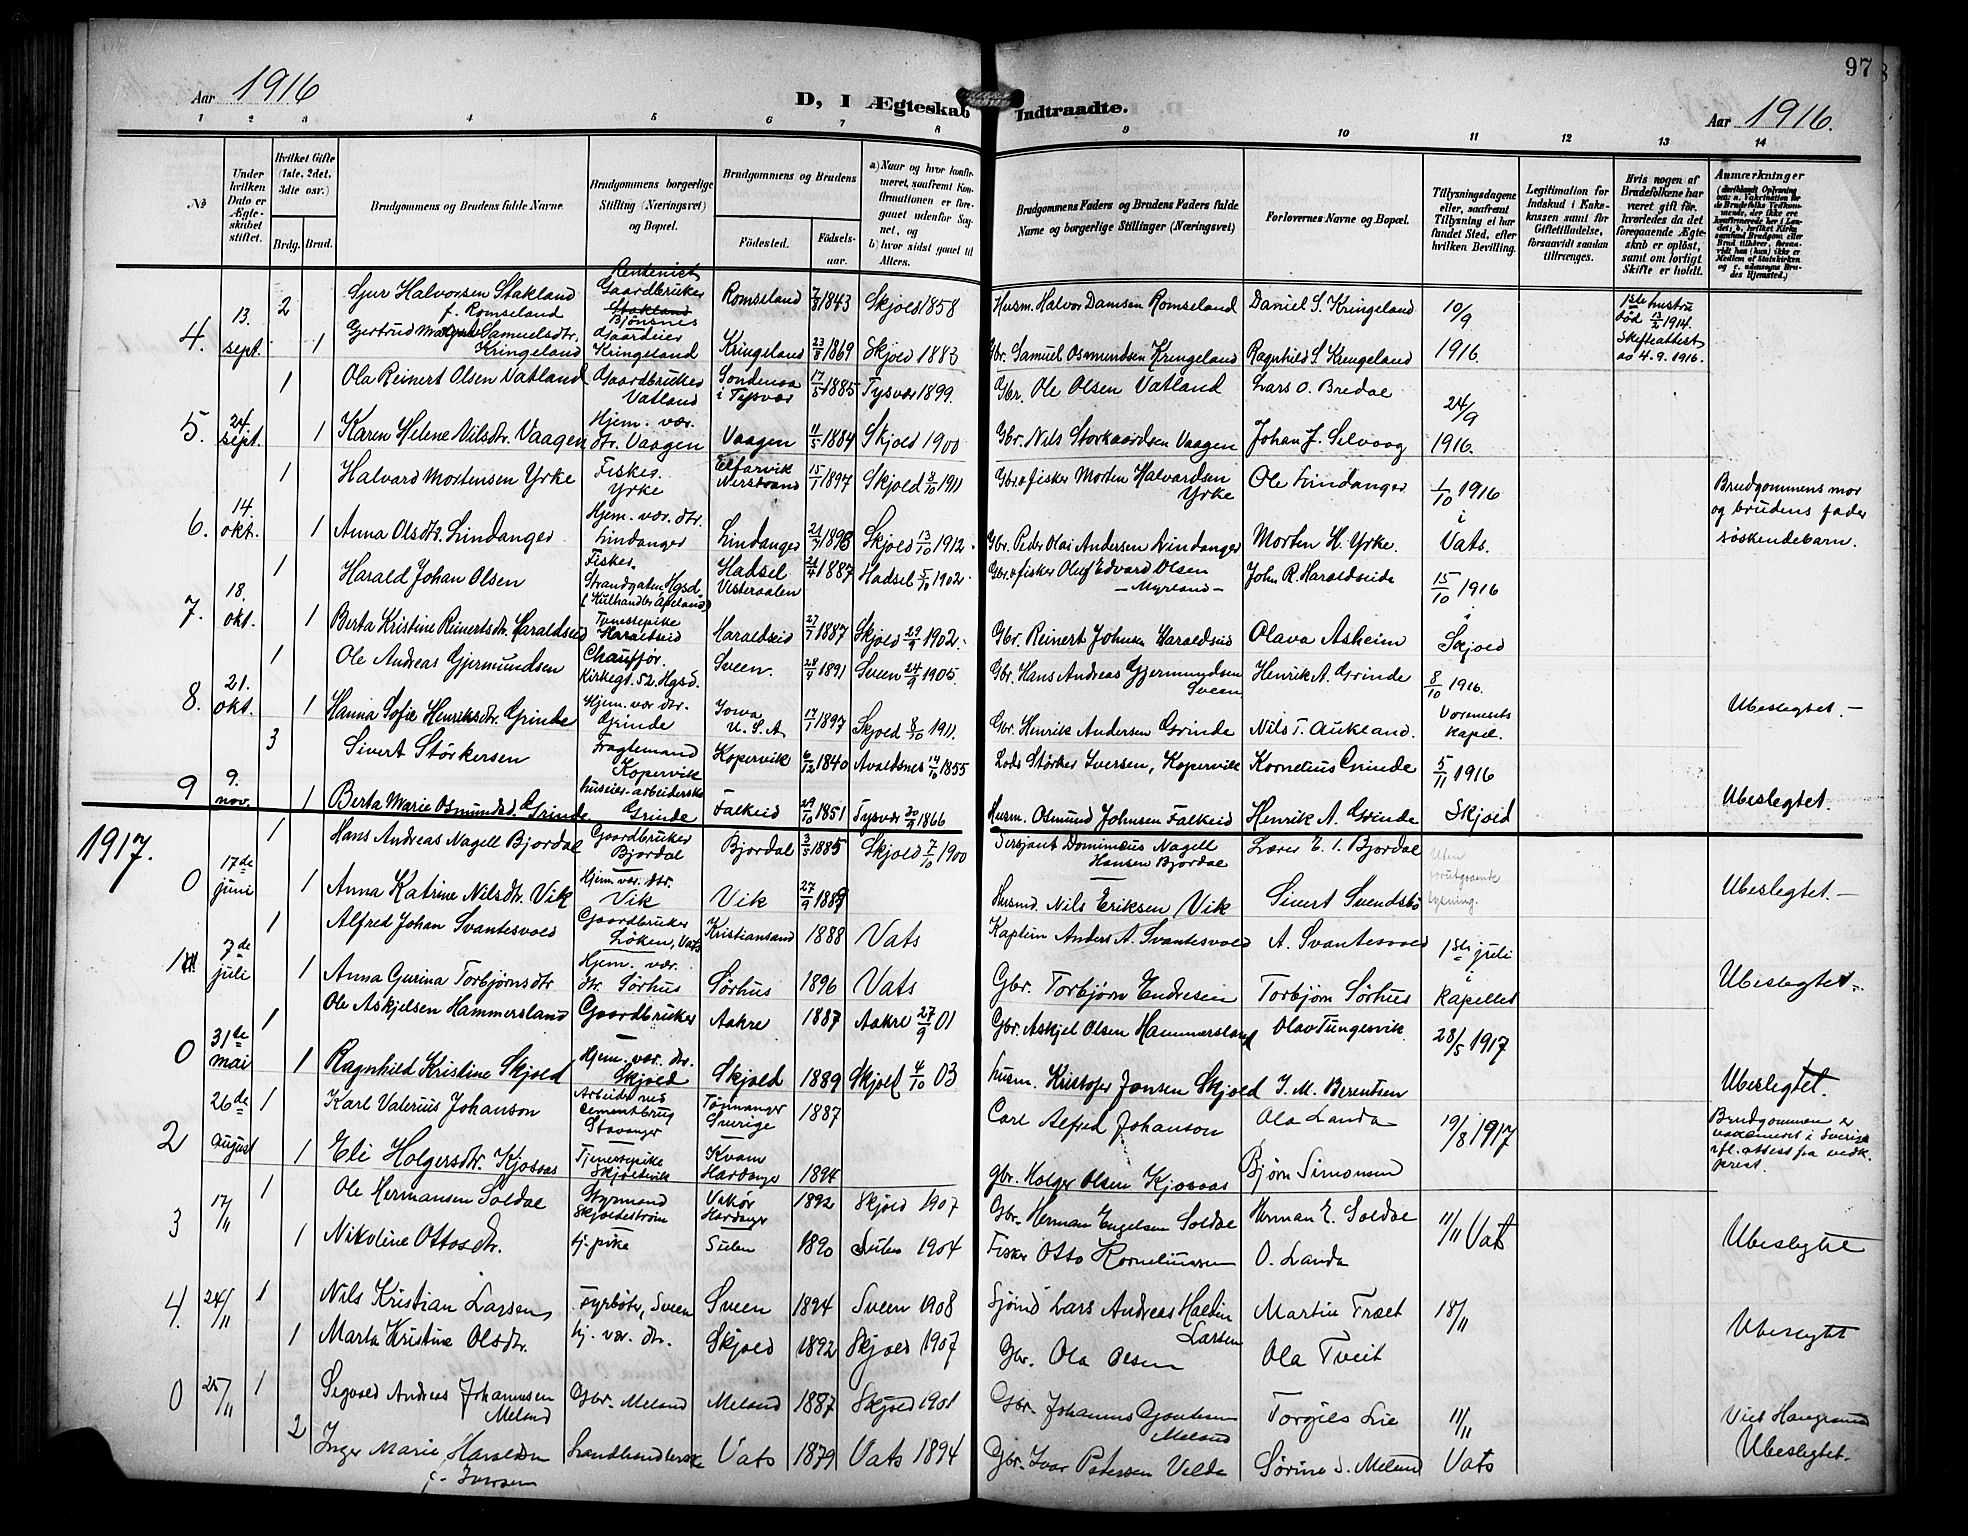 97
Aar 1916
D, I Ægteskab Indtraadte.
Aar 1916.
1 2 3 4 5 6 7 8 9 10 11 12 13 14
№
Under hvilken Dato er Ægteskabet stiftet.
Hvilket Gifte (1ste, 2det, 3die osv.)
Brdg. Brud.
Brudgommens og Brudens fulde Navne.
Brudgommens borgerlige Stilling (Næringsvei) og Bopæl.
Brudgommens og Brudens
Fødested.
Fødselsaar.
a) Naar og hvor konfirmeret, saafremt Konfirmationen er foregaaet udenfor Sognet, og
b) hvor sidst gaaet til Alters.
Brudgommens Faders og Brudens Faders fulde Navne og borgerlige Stillinger (Næringsvei)
Forlovernes Navne og Bopæl.
Tillysningsdagene eller, saafremt Tillysning ei har fundet Sted, efter hvilken Bevilling.
Legitimation for Indskud i Enkekassen samt for Giftetilladelse, forsaavidt saadan tiltrænges.
Hvis nogen af Brudefolkene har været gift før, hvorledes da det foregaaende Ægteskab er opløst, samt om lovligt Skifte er holdt.
Anmærkninger
4. 13. sept. 2 Gjur Halvorsen Stakland f. Romseland Rentenist Gaardbruker Stakland Bjønsnes Romseland 7/8 1843 Skjold 1858 Husm. Halvor Damsen Romseland Daniel S. Kringeland 10/9 1916. 1ste hustru død 13/2 1914. Skifteattest av 4.9.1916.
1 Gjertrud Margrete Samuelsdtr. Kringeland Gaardeier Kringeland Kringeland 23/8 1869 Skjold 1883 Gbr. Samuel Osmundsen Kringeland Ragnhild S. Kringeland
5. 24. sept. 1 Ola Reinert Olsen Vatland Gaardbruker Vatland Søndenaa i Tysvær 17/5 1885 Tysvær 1899. Gbr. Ole Olsen Vatland Lars O. Bredal 24/9 1916.
1 Karen Helene Nilsdtr. Vaagen Hjem. vær. dtr. Vaagen Vaagen 11/5 1884 Skjold 1900 Gbr. Nils Storkaardsen Vaagen Johan J. Selvaag
6. 14. okt. 1 Halvard Mortensen Yrke Fisker. Yrke Nerstrand 15/1 1897 Skjold 8/10 1911 Gbr. & fisker Morten Halvardsen Yrke Ole Lindanger 1/10 1916 i Vats. Brudgommens mor og brudens fader søskendebarn.
1 Anna Olsdtr. Lindanger Hjem. vær. dtr. Lindanger Lindanger 1898 Skjold 13/10 1912. Gbr. Peder Olai Andersen Lindanger Morten H. Yrke.
7. 18. okt. 1 Harald Johan Olsen Fisker. Strandgaten, Hgsd. Hadsel Vesteraalen 1887 Hadsel 5/10 1902. Gbr. & fisker Oluf Edvard Olsen - Myrland - John R. Haraldseide 15/10 1916 i Skjold
1 Berta Kristine Reinertsdtr. Haraldseid Tjenestepike Haraldseid Haraldseid 27/7 1887 Skjold 29/9 1902. Gbr. Reinert Johnsen Haraldseid Olava Asheim
8. 21. okt. 1 Ole Andreas Gjermundsen Chauffør. Kirkegt. 52. Hgsd. Sveen. 1891 Sveen 24/9 1905. Gbr. Hans Andreas Gjermundsen Sveen Henrik A. Grinde 8/10 1916. Vormeset's kapel. Ubeslegtet. -
1 Hanna Sofie Henriksdtr. Grinde Hjem. vær dtr. Grinde Iowa U.S.A 17/1 1897 Skjold 8/10 1911. Gbr. Henrik Andersen Grinde Nils T. Aukland.
9 9. nov. 3 Sivert Størkersen Fraglemand Kopervik Kopervik 6/12 1840 Avaldsnes 14/10 1855 Lods Størker Iversen, Kopervik Kornelius Grinde 5/11 1916 Skjold Ubeslegtet.
1 Berta Marie Osmundsd. Grinde huseier-arbeiderske Grinde Falkeid 29/10 1851 Tysvær 30/9 1866 Husm. Osmund Johnsen Falkeid Henrik A. Grinde
1917.
0 17de juni 1 Hans Andreas Nagell Bjordal Gaardbruker Bjordal Bjordal 3/5 1885 Skjold 7/10 1900 Sersjant Dominicus Nagell Hansen Bjordal Lærer E. I. Bjordal Uten forutgaaende lysning. Ubeslegtet. -
1 Anna Katrine Nilsdtr. Vik Hjem. vær. dtr. Vik Vik 27/9 1889 Husmd. Nils Eriksen Vik Sivert Svendsbø
1 7de juli 1 Alfred Johan Svantesvold Gaardbruker Løken, Vats Kristiansand 1888 Vats Kaptein Anders A. Svantesvold A. Svantesvold 1ste juli i kapellet Ubeslegtet.
1 Anna Gurina Torbjørnsdtr Hjem. vær. dtr. Sørhus Sørhus 1896 Vats Gbr. Torbjørn Endresen Torbjørn Sørhus
0 31de mai 1 Ole Askjelsen Hammersland Gaardbruker Aakre 1887 Aakre 27/9 01 Gbr. Askjel Olsen Hammersland Olav Tungesvik 28/5 1917 Ubeslegtet.
1 Ragnhild Kristine Skjold Hjem. vær. dtr. Skjold Skjold 1889 Skjold 4/10 03 husm. Kristofer Jonsen Skjold J. M. Berentsen
2 26de august 1 Karl Valerius Johanson Arbeider ved Cementbrug Stavanger Tønnanger Sverige 1887 Carl Alfred Johanson Ola Landa 19/8 1917 Brudgommen er vaksineret i Sverige ifl. attest fra vedk. prest.
1 Eli Holgersdtr. Kjosaas Tjenestepike Skjoldevik Kvam Hardanger 1894 gbr. Holger Olsen Kjosaas Bjørn Simonsen
3 17/11 1 Ole Hermansen Soldal Styrmand Skjoldestrøm Vikør Hardanger 1892 Skjold 1907 Gbr. Herman Engelsen Soldal Herman E. Soldal 11/11 Vats Ubeslegtet
1 Nikoline Ottosdtr. tj. pike Sulen 1890 Sulen 1904 Fisker Otto Korneliussen O. Landa
4. 24/11 1 Nils Kristian Larsen Fyrbøter, Sveen Sveen 1894 Sveen 1908 Sjømd Lars Andreas Haldin Larsen Martin Træet 18/11 Ubeslegtet
1 Marta Kristine Olsdtr. hj. vær. dtr. Skjold 1892 Skjold 1907 Gbr. Ola Olsen Ola Tveit
0 25/11 1 Sigvald Andreas Johannessen Meland Gbr. Meland Meland 1887 Skjold 1901 Gbr. Johannes Goutesen Meland Torgils Lie 11/11 Vats Viet Haugesund Ubeslegtet.
2 Inger Marie Haraldsen f. Iversen Landhandlerske Vats 1879 Vats 1894 Gbr. Ivar Pedersen Velde Sørine S. Meland